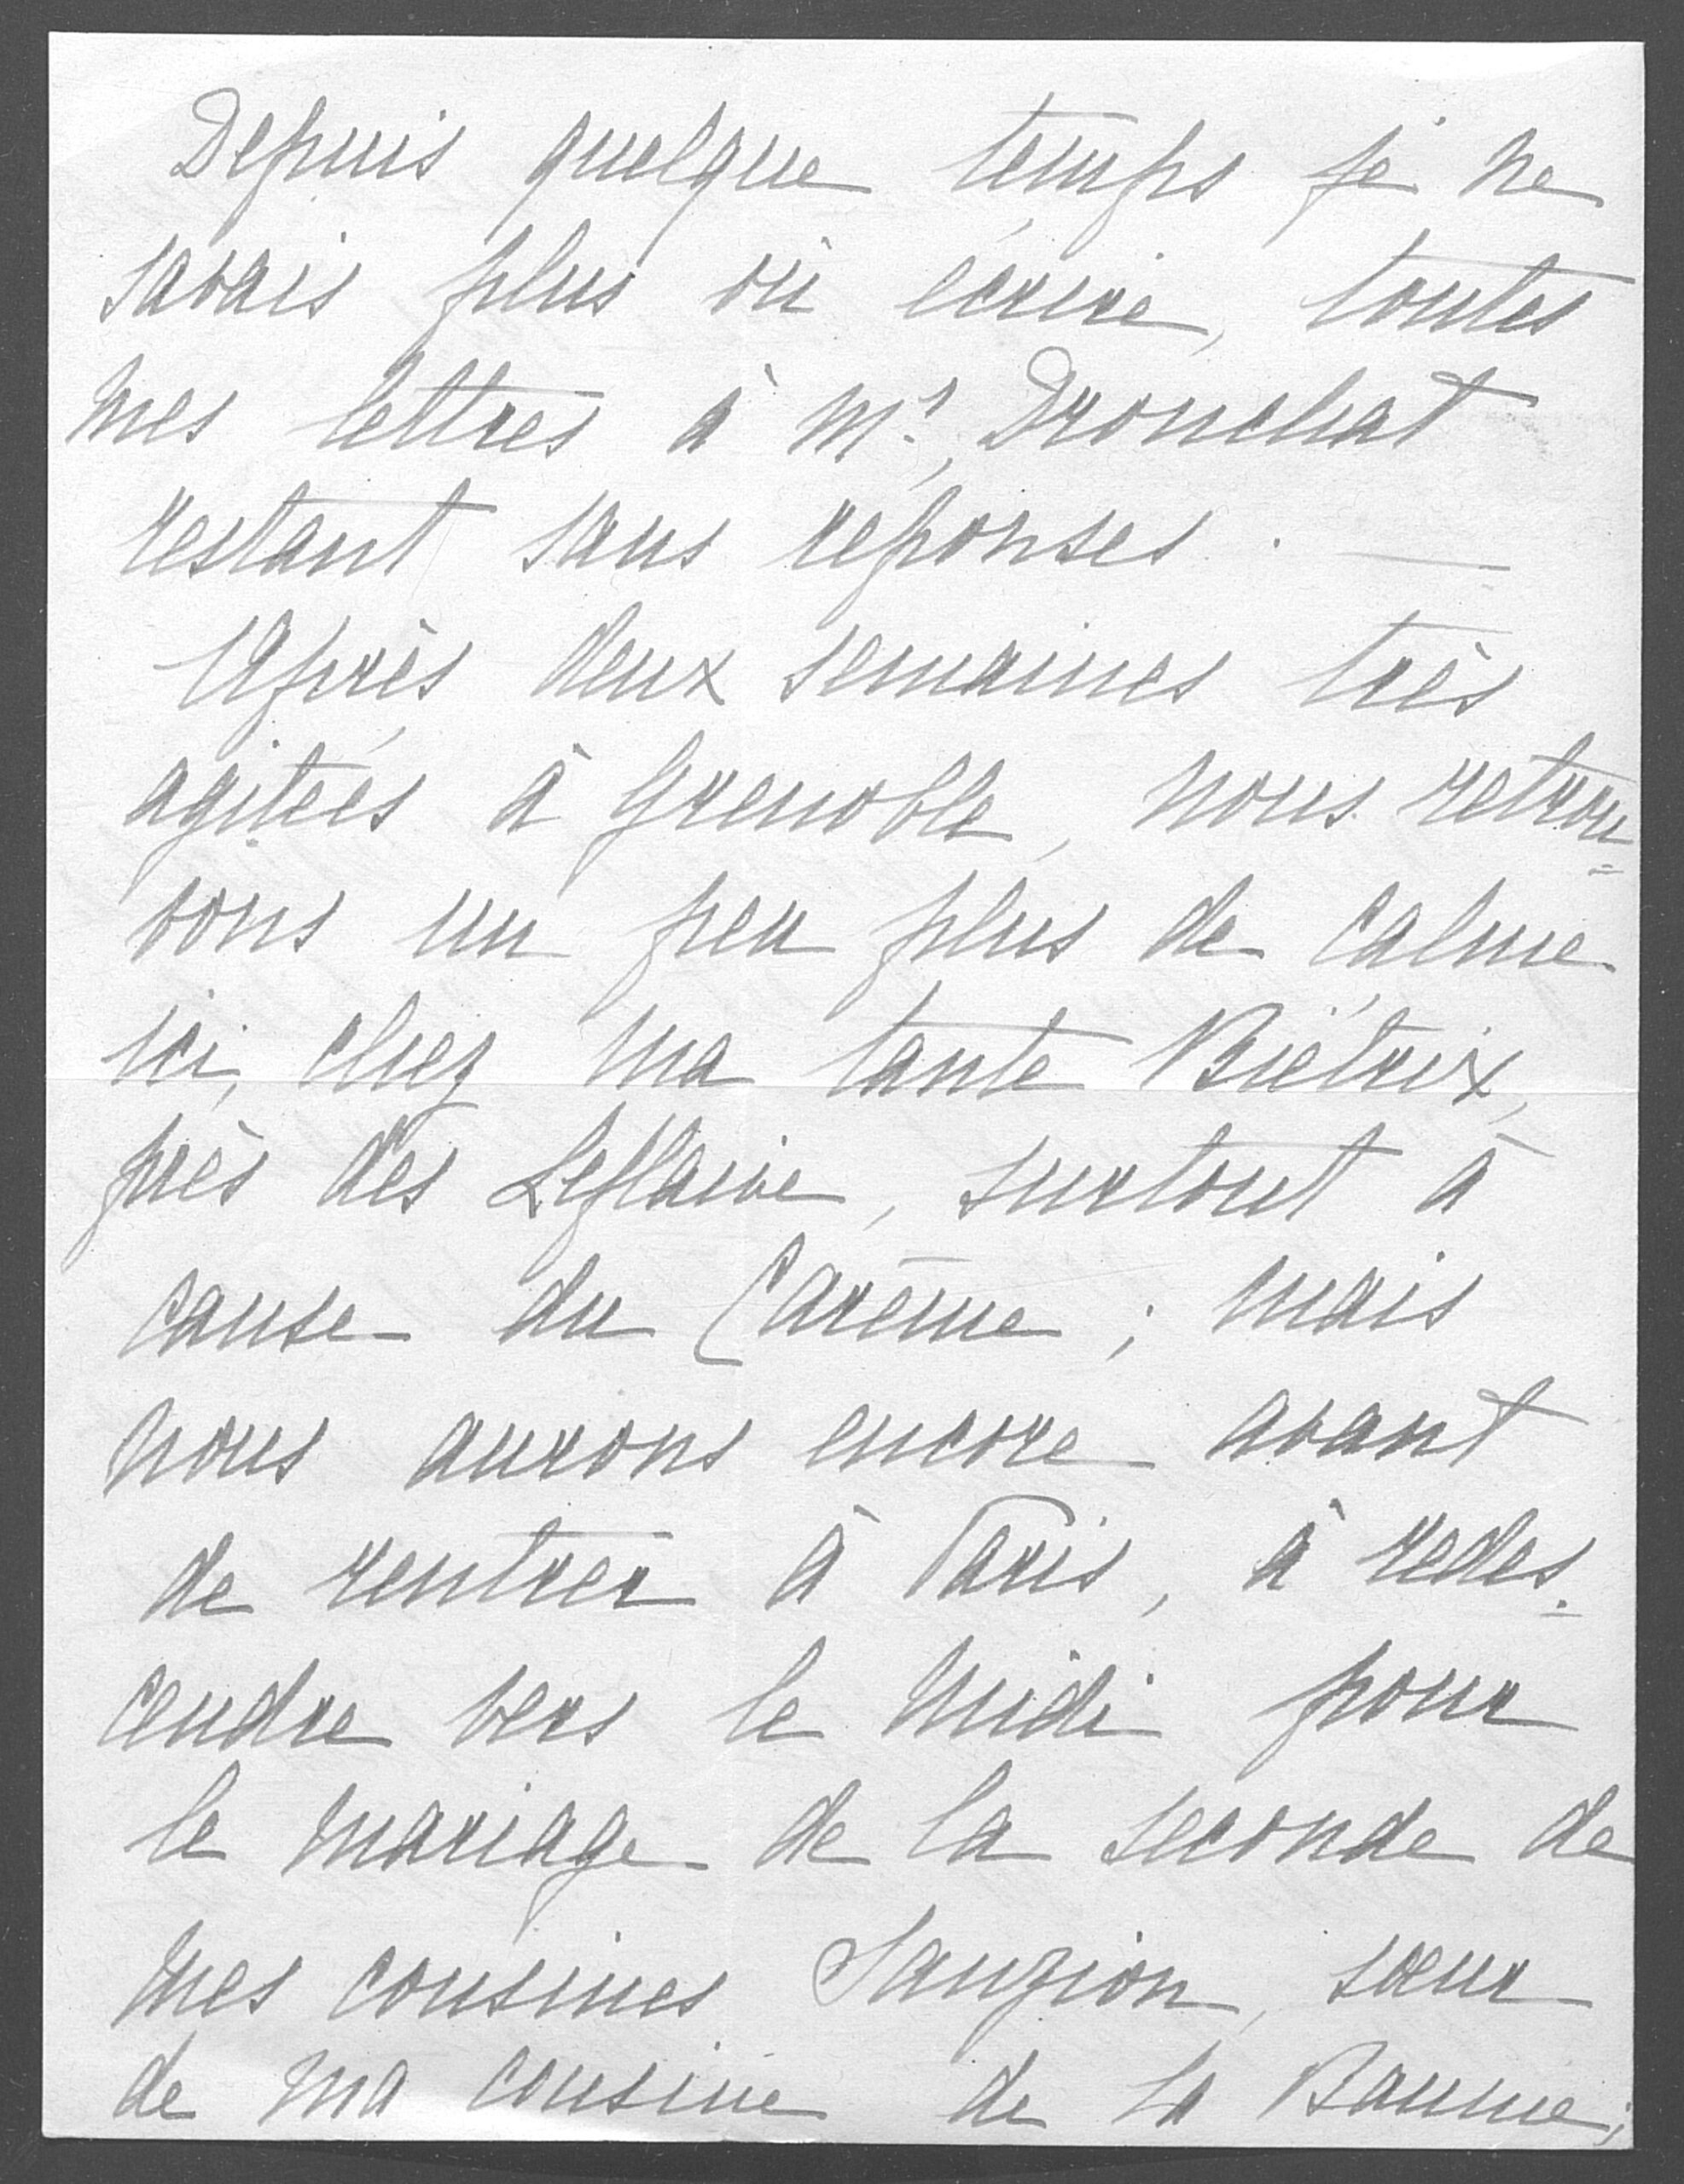 Depuis quelque temps je ne
savais plus où écrire, toutes
mes lettres à Mr. Dronchat
restant sans réponses. —
Après deux semaines très
agitées à Grenoble, nous retrou=
vons un peu plus de calme
ici, chez ma tante Biétrix,
près des Leflaive, surtout à
cause du Carême ; mais
nous aurons encore avant
de rentrer à Paris, à redes-
cendre vers le midi pour
le mariage de la seconde de
mes cousines Jauzion, sœur
de ma cousine de La Baume;